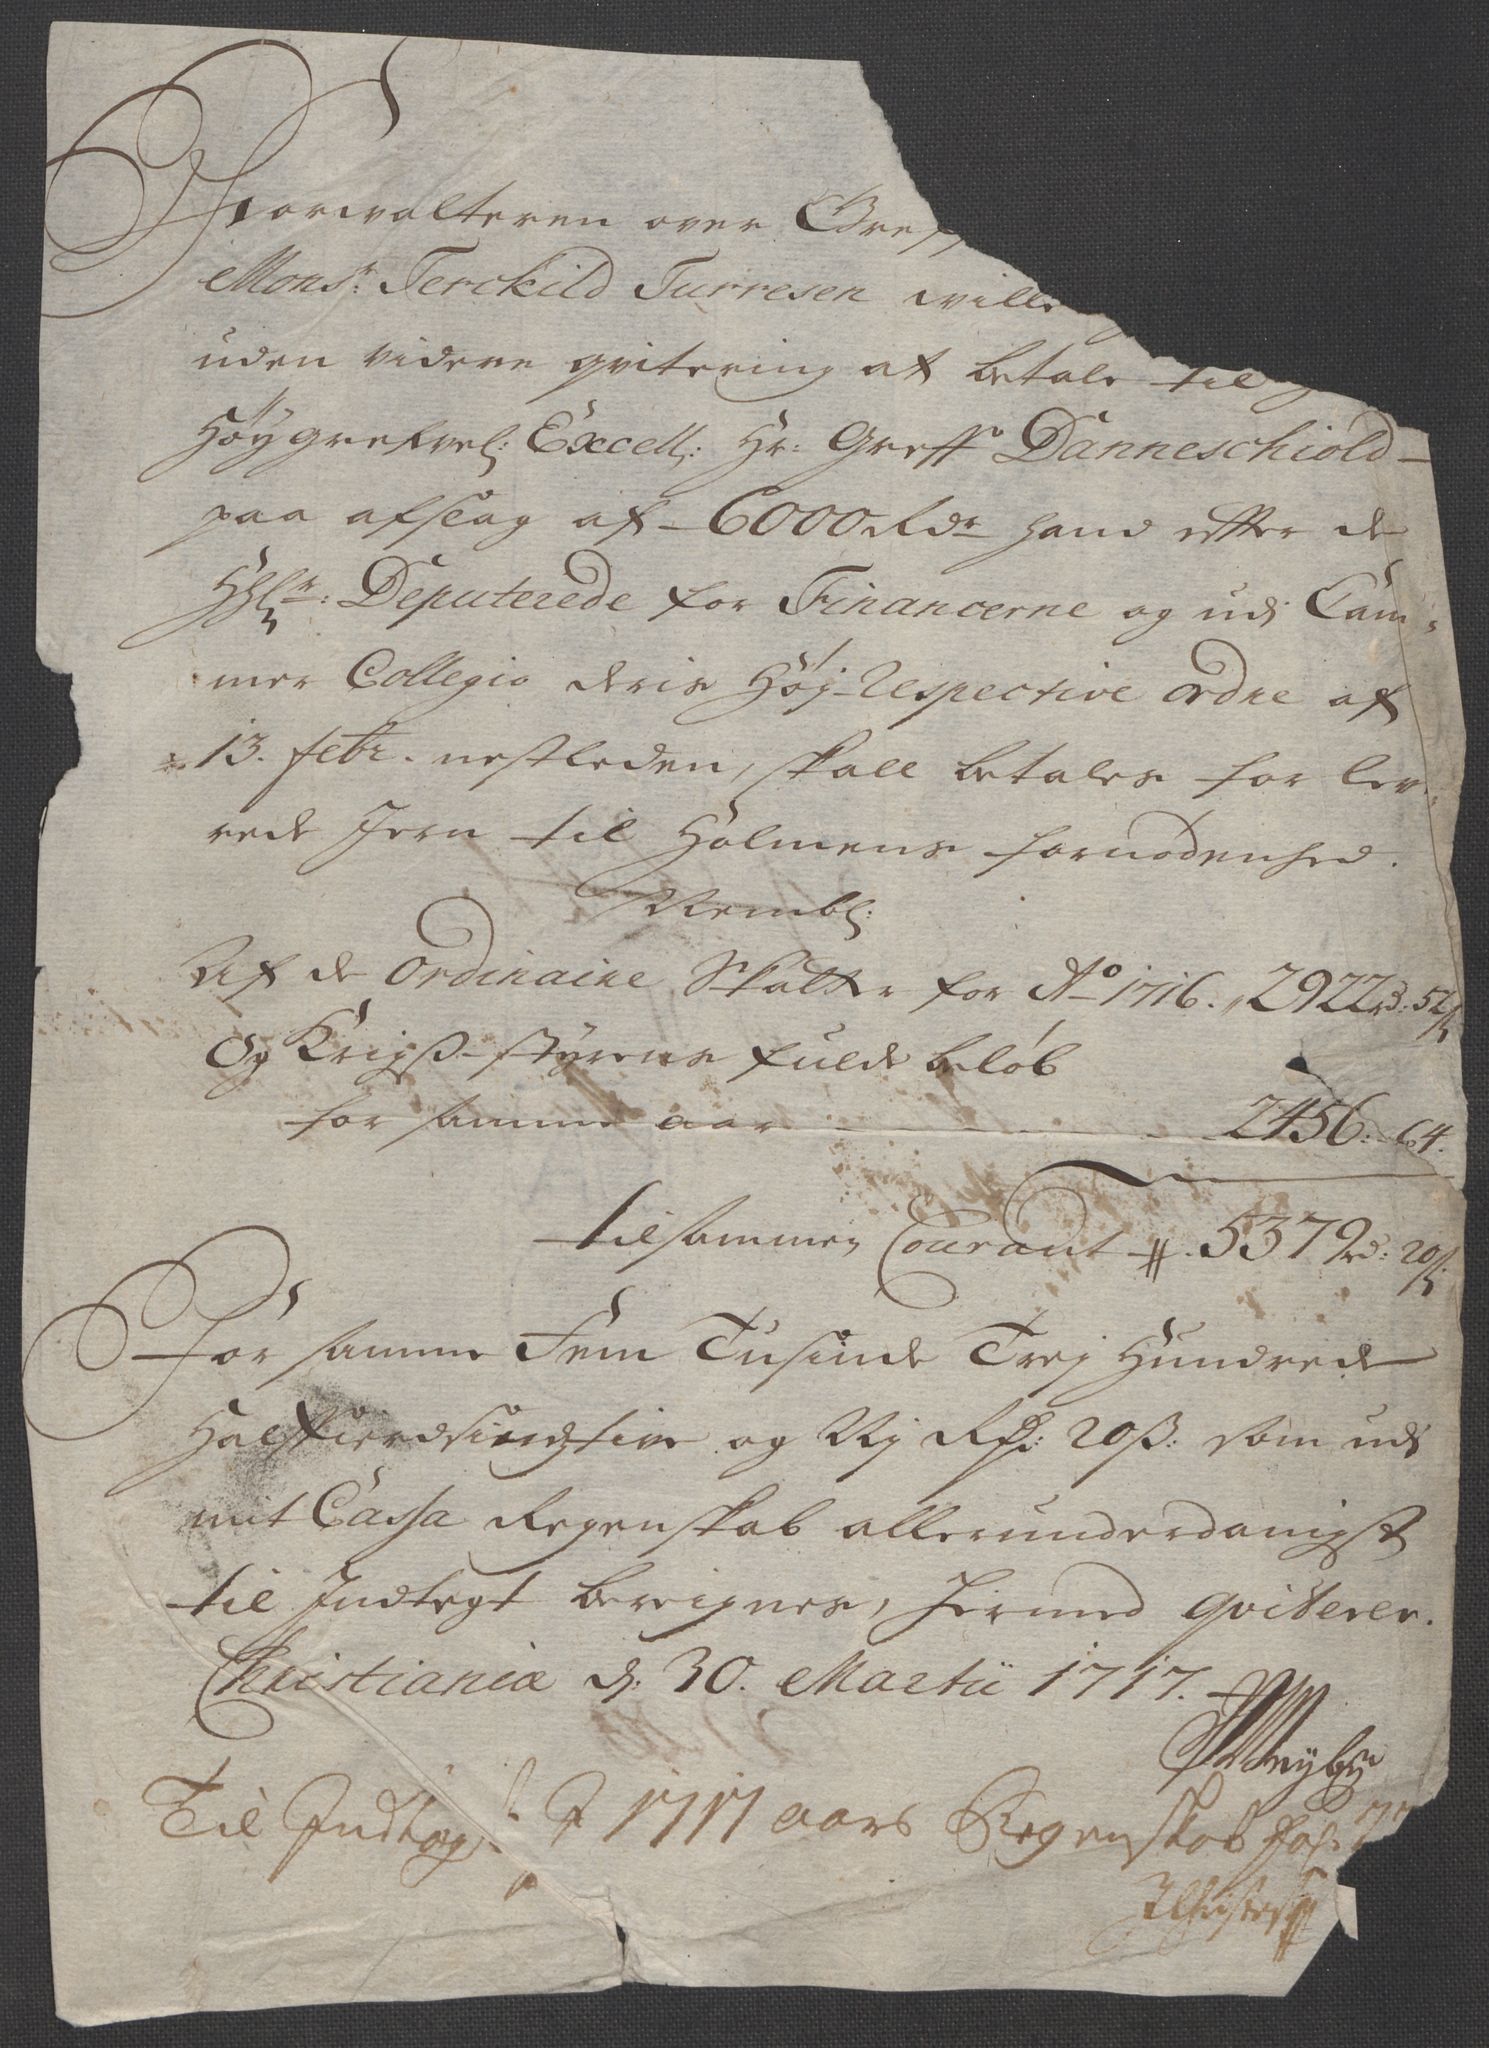 Forvalteren over Greff
Monsr: Terckild Turresen ville
uden videre qvitering at betale til
Høygrefvel: Excell: Hr: Greff Danneschiold
paa afslag af 6000 Rdr hand efter de
HHr: Deputerede for Financerne og udj Cam-
mer Collegio deris Høj-Respective ordre af
13. febr. nestleden, skall betales for lev-
rede Jern til Holmens fornødenhed.
Nembl:
Af de Ordinaire Skatter for Ao 1716. 2922 rd: 52 s
Og Krigs-styrens fulde beløb
for samme aar 2456: 64.
tilsammen Courant 5379 rd: 20 s
For samme Fem Tusinde Trej Hundrede
Halffierdsindstive og Nj Rd: 20 ß: som udj
mit Cassa Regenskab allerunderdanigst
til Indtegt bereignes, hermed qviterer.
Christiania d: 30. Martii 1717.
Til Indtægt 1717 aars Regenskab fol: